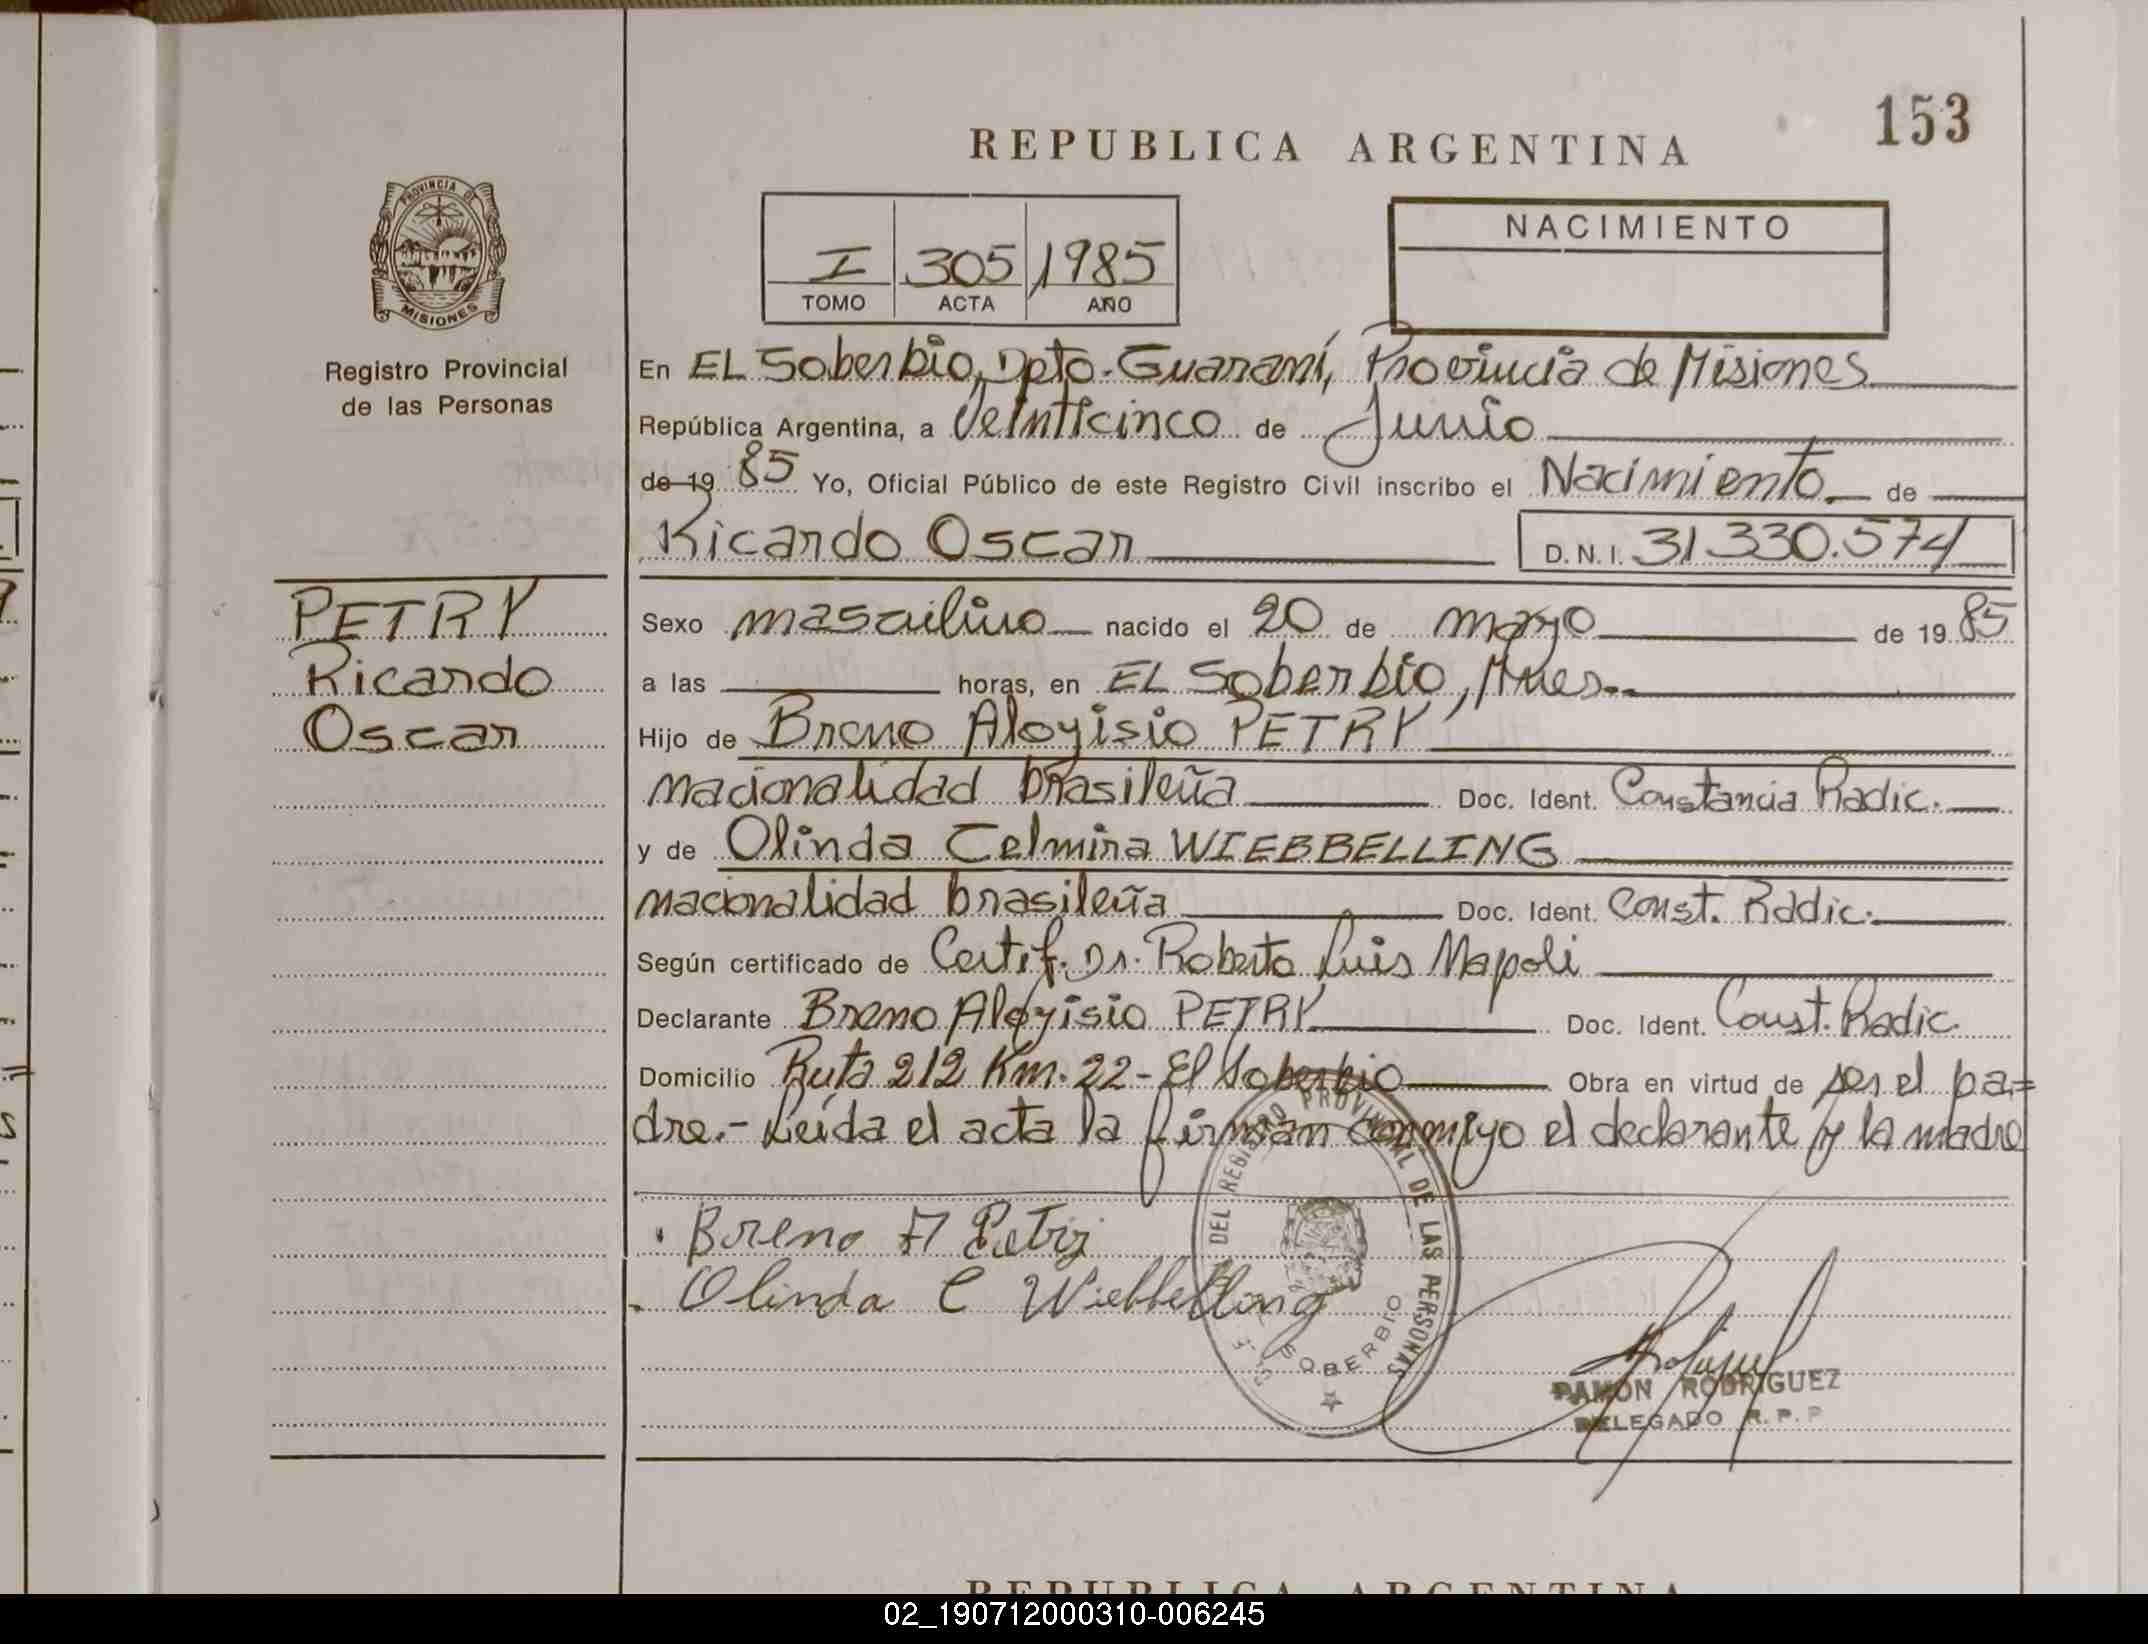 153
REPUBLICA ARGENTINA
PROVINCIA DE
MISIONES
Registro Provincial
de las Personas
I 305 1985
TOMO ACTA AÑO
NACIMIENTO
En EL Soberbio, Dpto. Guaraní, Provincia de Misiones
República Argentina, a Veinticinco de Junio
de 19 85 Yo, Oficial Público de este Registro Civil inscribo el Nacimiento de
Ricardo Oscar D.N.I. 31.330.574
PETRY
Ricardo
Oscar
Sexo masculino nacido el 20 de mayo de 19 85
a las horas, en EL Soberbio, Mnes.-
Hijo de Breno Aloyisio PETRY
nacionalidad brasileña Doc. Ident. Constancia Radic.
y de Olinda Celmira WIEBBELLING
nacionalidad brasileña Doc. Ident. Const. Radic.
Según certificado de Certif. Dr. Roberto Luis Napoli
Declarante Breno Aloyisio PETRY Doc. Ident. Const. Radic.
Domicilio Ruta 212 Km. 22 - El Soberbio Obra en virtud de ser el pa=
dre.- Leída el acta la firman conmigo el declarante y la madre
Breno A Petry
Olinda C Wiebbelling
DEL REGISTRO PROVINCIAL DE LAS PERSONAS
SOBERBIO
RAMON RODRIGUEZ
DELEGADO R.P.P
REPUBLICA ARGENTINA
02_190712000310-006245